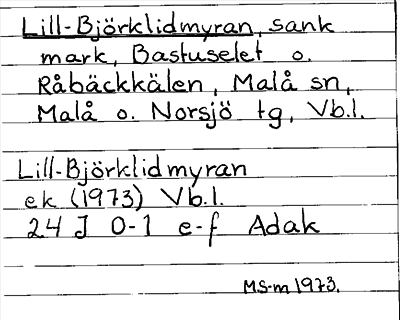 Lill-Björklidmyran, sank
mark, Bastuselet o.
Råbäckkälen, Malå sn,
Malå o. Norsjö tg, Vb.l.
Lill-Björklidmyran
ek (1973) Vb.l.
24 J 0-1 e-f Adak
MS-m 1973.